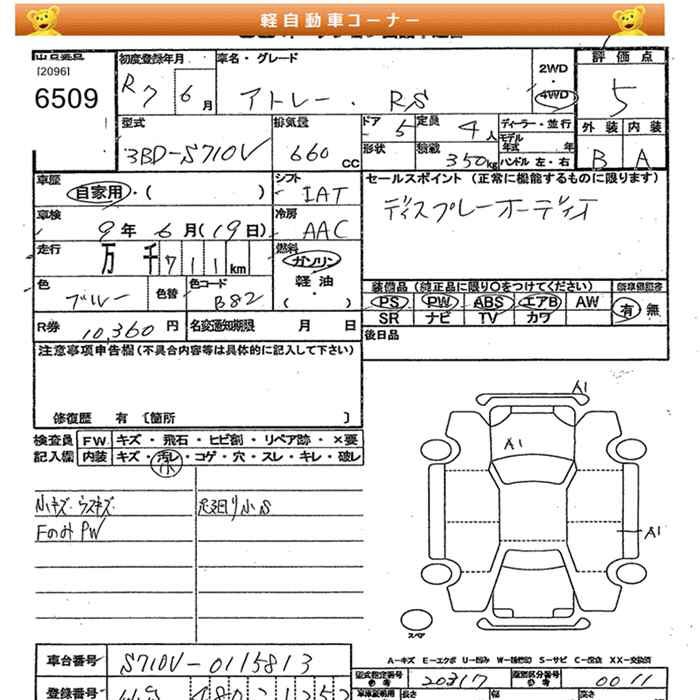 軽自動車コーナー
[2096]
6509
初度登録年月
R7 6月
車名・グレード
アトレー ・ RS
2WD
・
4WD
評価点
5
外装 内装
B A
型式
3BD-S710V
排気量
660 CC
ドア 5
定員 4人
ディーラー・並行
モデル年式 年
形状
積載 350kg
ハンドル 左・右
車歴
自家用・( )
シフト
IAT
セールスポイント (正常に機能するものに限ります)
ディスプレーオーディオ
車検
9年 6月(19日)
冷房
AAC
走行
万 千 711 km
燃料
ガソリン
軽油
・
( )
色
ブルー
色替
色コード
B82
装備品 (純正品に限り○をつけてください)
PS PW ABS エアB AW
SR ナビ TV カワ
有 無
R券 10,360 円
名変通知期限 月 日
後日品
注意事項申告欄 (不具合内容等は具体的に記入して下さい)
修復歴 有 〔箇所 〕
検査員
記入欄
FW キズ・飛石・ヒビ割・リペア跡・×要
内装 キズ・汚レ・コゲ・穴・スレ・キレ・破レ
小
小キズ・ウスキズ
FのみPW
足廻り小S
A1
A1
A1
スペア
A-キズ E-エクボ U-凹み W-補修跡 S-サビ C-腐食 XX-交換済
車台番号 S710V-0115813
型式指定番号
参考
20317
類別区分番号
参考
0011
登録番号
長さ
幅
高さ